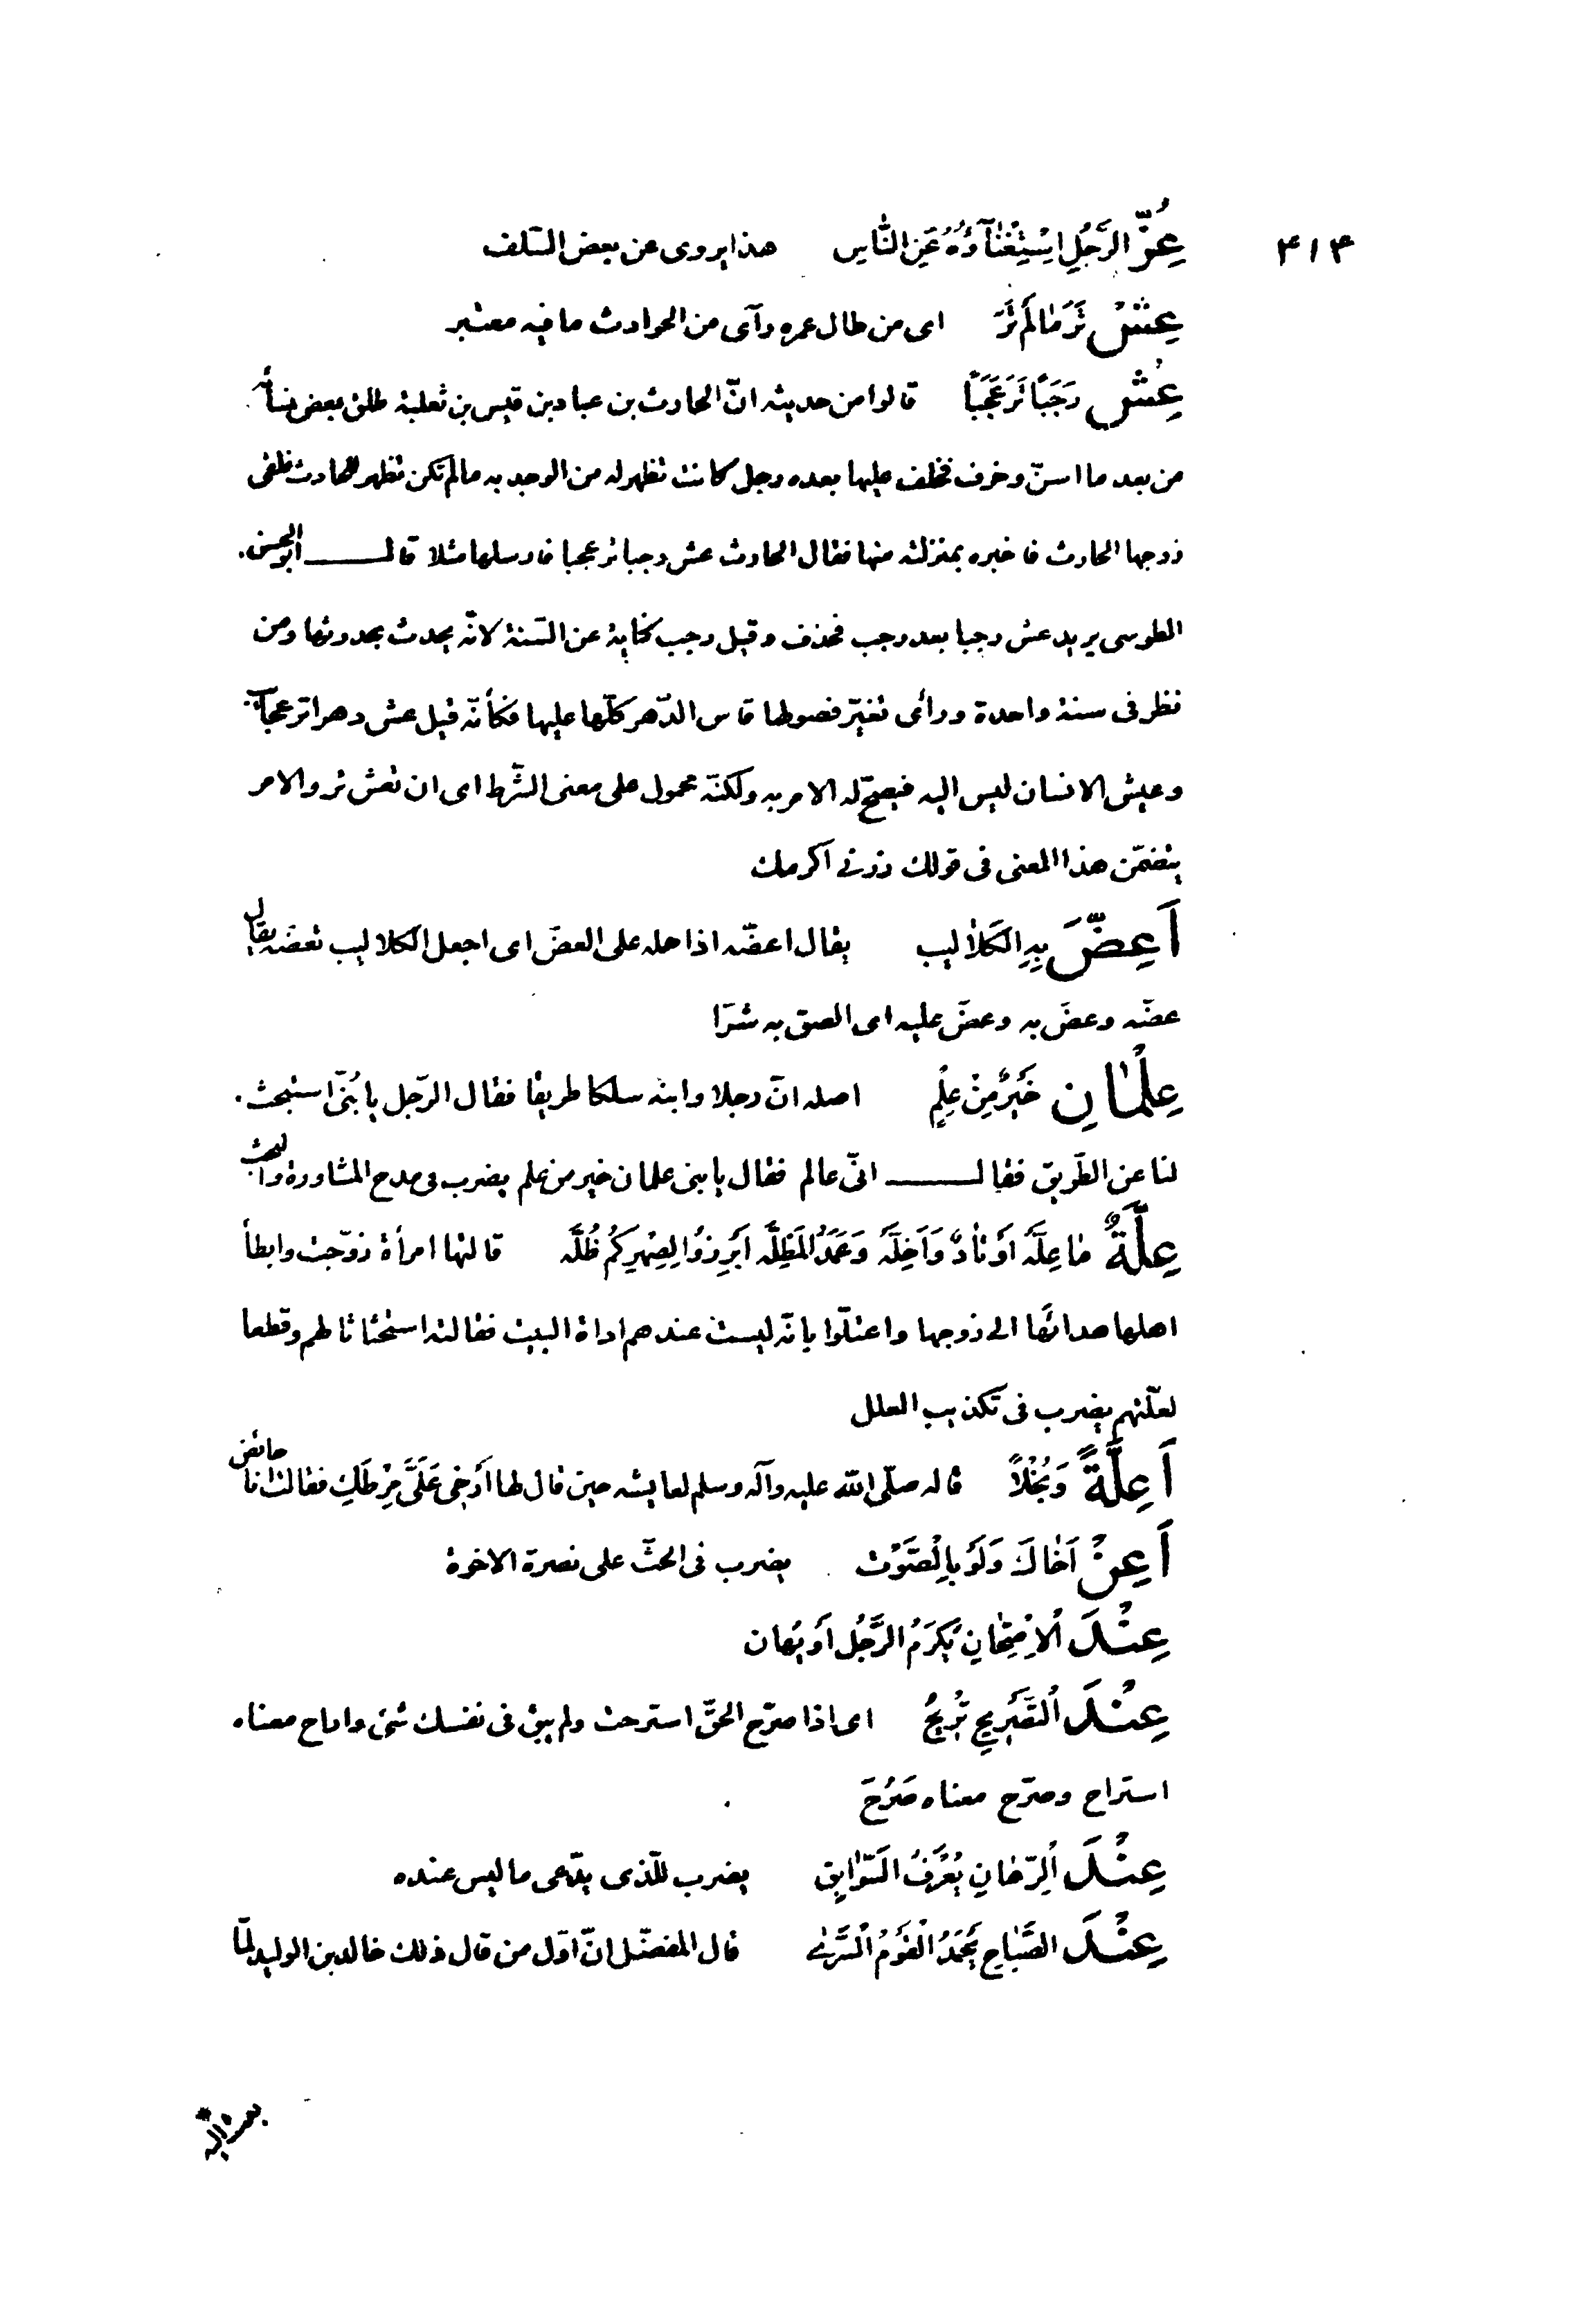 ٤١٤
عِزُّ الرَّجُلِ اِسْتِغْنَآؤُهُ عَنِ النَّاسِ هذا يروى عن بعض السّلف
عِشْ تَرَ مَا لَمْ تَرَ اى من طال عمره رآى من الحوادث ما فيه معتبر
عِشْ رَجَبًا تَرَ عَجَبًا قالوا من حديثه انّ الحارث بن عباد بن قيس بن ثعلبة طلق بعض نسآئه
من بعد ما اسنّ وخرف فخلف عليها بعده رجل كانت تظهر له من الوجد به ما لم تكن تظهر للحارث فلقى
زوجها الحارث فاخبره بمنزلته منها فقال الحارث عش رجبا تر عجبا فارسلها مثلا قال ابوالحسن
الطوسى يريد عش رجبا بعد رجب فحذف وقيل رجب كناية عن السّنة لانّه يحدث بحدوثها ومن
نظر فى سنة واحدة ورأى تغيّر فصولها قاس الدّهر كلّها عليها فكأنّه قيل عش دهرا تر عجآئب
وعيش الانسان ليس اليه فيصحّ له الامر به ولكنّه محمول على معنى الشّرط اى ان تعش تر والامر
يتضمّن هذا المعنى فى قولك زرنى اكرمك
اَعِضَّ بِهِ الكَلاليب يقال اعضّه اذا حمله على العضّ اى اجعل الكلاليب تعضّه يقال
عضّه وعضّ به وعضّ عليه اى الصق به شرّا
عِلْمَانِ خَيْرٌ مِنْ عِلْمٍ اصله انّ رجلا وابنه سلكا طريقا فقال الرّجل يا بُنَىّ استبحث
لنا عن الطّريق فقال انّى عالم فقال يا بنى علمان خير من علم يضرب فى مدح المشاورة والبحث
عِلَّةٌ مَا عِلَّهْ اَوْتَادٌ وَاَخِلَّهْ وَعَمَدُ المَظِلَّه اَبْرِزُوا لِصِهْرِكُمْ ظُلَّه قالتها امرأة زوّجت وابطأ
اهلها هدائها الى زوجها واعتلّوا بانّه ليست عندهم اداة البيت فقالته استحثاثا لهم وقطعا
لعلّتهم يضرب فى تكذيب العلل
اَعِلَّةً وَبُخْلًا قاله صلّى الله عليه وآله وسلم لعايشه حين قال لها اَرْخِى عَلَىَّ مِرْطَكِ فقالت انا حائض
اَعِنْ اَخَاكَ وَلَوْ بِالصَّوْت يضرب فى الحثّ على نصرة الاخوة
عِنْدَ الْاِمْتِحَانِ يُكْرَمُ الرَّجُلُ اَوْ يُهان
عِنْدَ التَّصْرِيحِ تُرِيحُ اى اذا صرّح الحقّ استرحت ولم يبق فى نفسك شئ واراح معناه
استراح وصرّح معناه صَرُحَ
عِنْدَ الرِّهَانِ يُعْرَفُ السَّوَابِق يضرب للّذى يدّعى ما ليس عنده
عِنْدَ الصَّبَاحِ يَحْمَدُ الْقَوْمُ السُّرَى قال المفضّل انّ اوّل من قال ذلك خالد بن الوليد لمّا